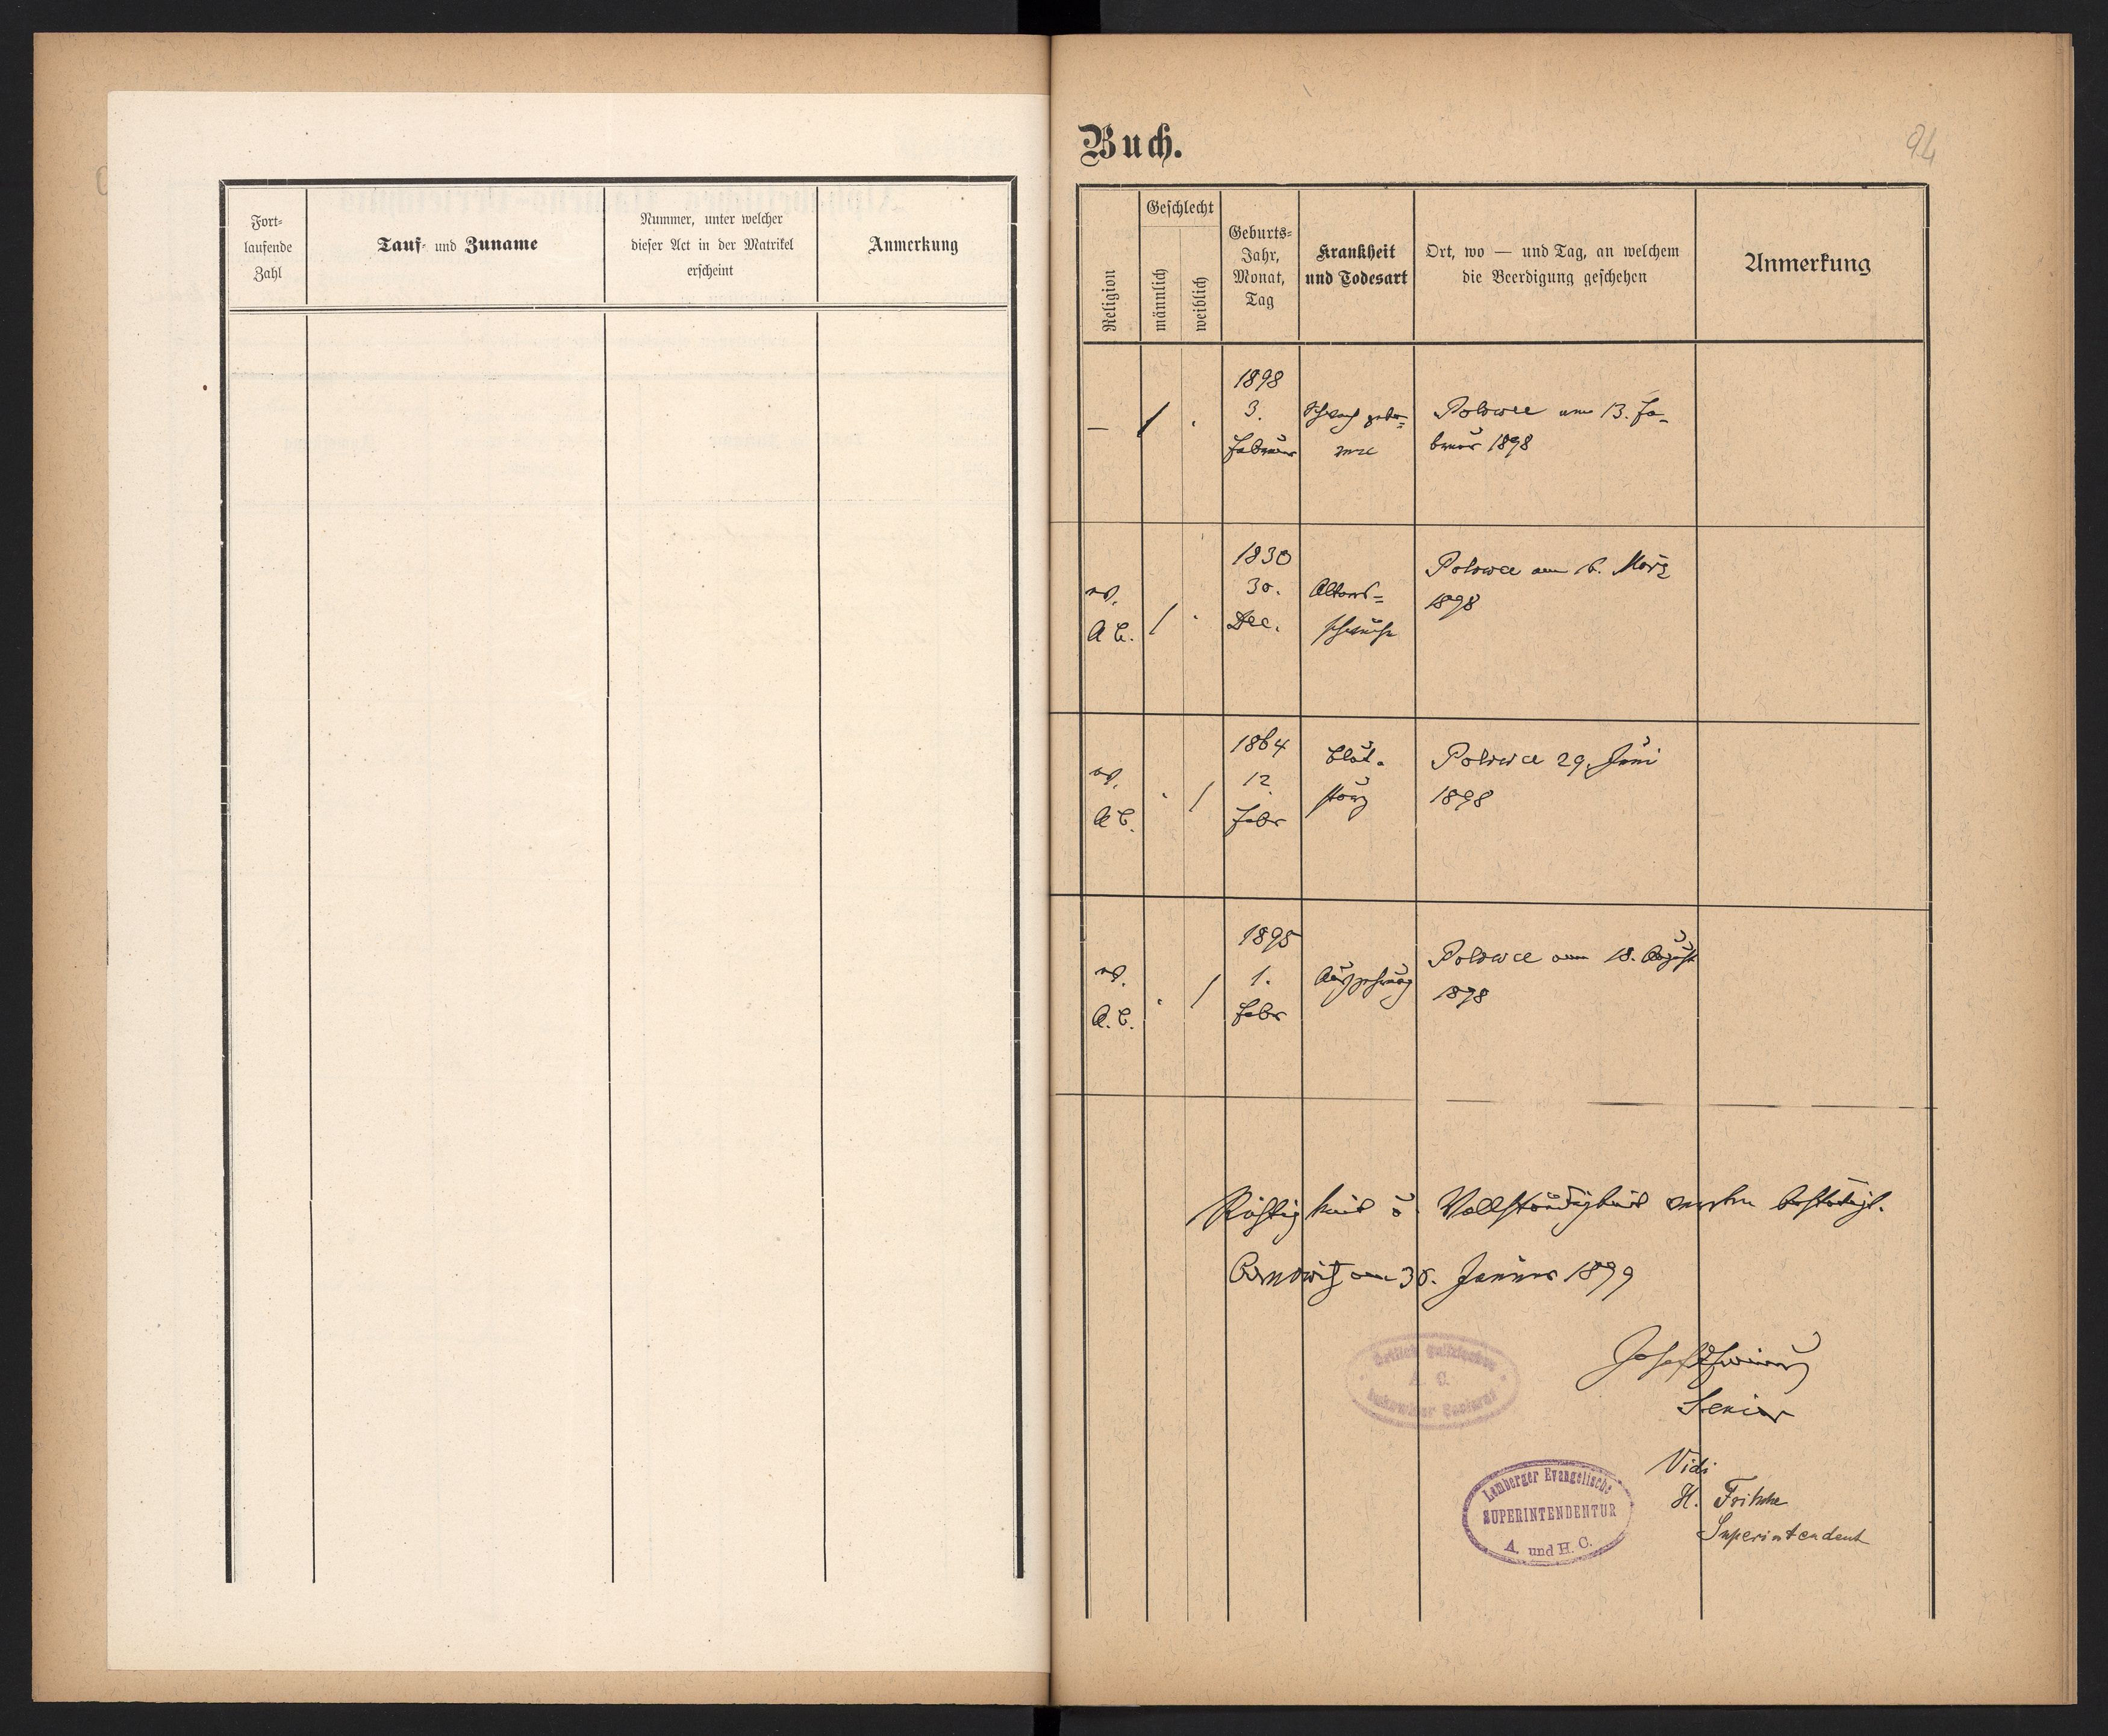 Fort-
laufende
Zahl
Tauf- und Zuname
Nummer, unter welcher
dieser Act in der Matrikel
erscheint
Anmerkung
Buch.
94
Religion
Geschlecht
männlich
weiblich
Geburts-
Jahr,
Monat,
Tag
Krankheit
und Todesart
Ort, wo — und Tag, an welchem
die Beerdigung geschehen
Anmerkung
—
/
1898
3.
Februar
Polowce am 13. Fe-
bruar 1898
ev.
A C.
/
1830
30.
Dec.
Alters-
schwäche
Polowce am 16. März
1898
ev.
A C.
/
1864
12
Febr
Blut-
sturz
Polowce 29. Juni
1898
ev.
A. C.
/
1895
1.
Febr
Auszehrung
Polowce am 18. August
1898
Richtigkeit u. Vollständigkeit bestätigt.
am 30. Januar 1899
Josef
Senior
A. C.
Vidi
H. Fritsche
Superintendent
Lemberger Evangelische
SUPERINTENDENTUR
A. und H. C.